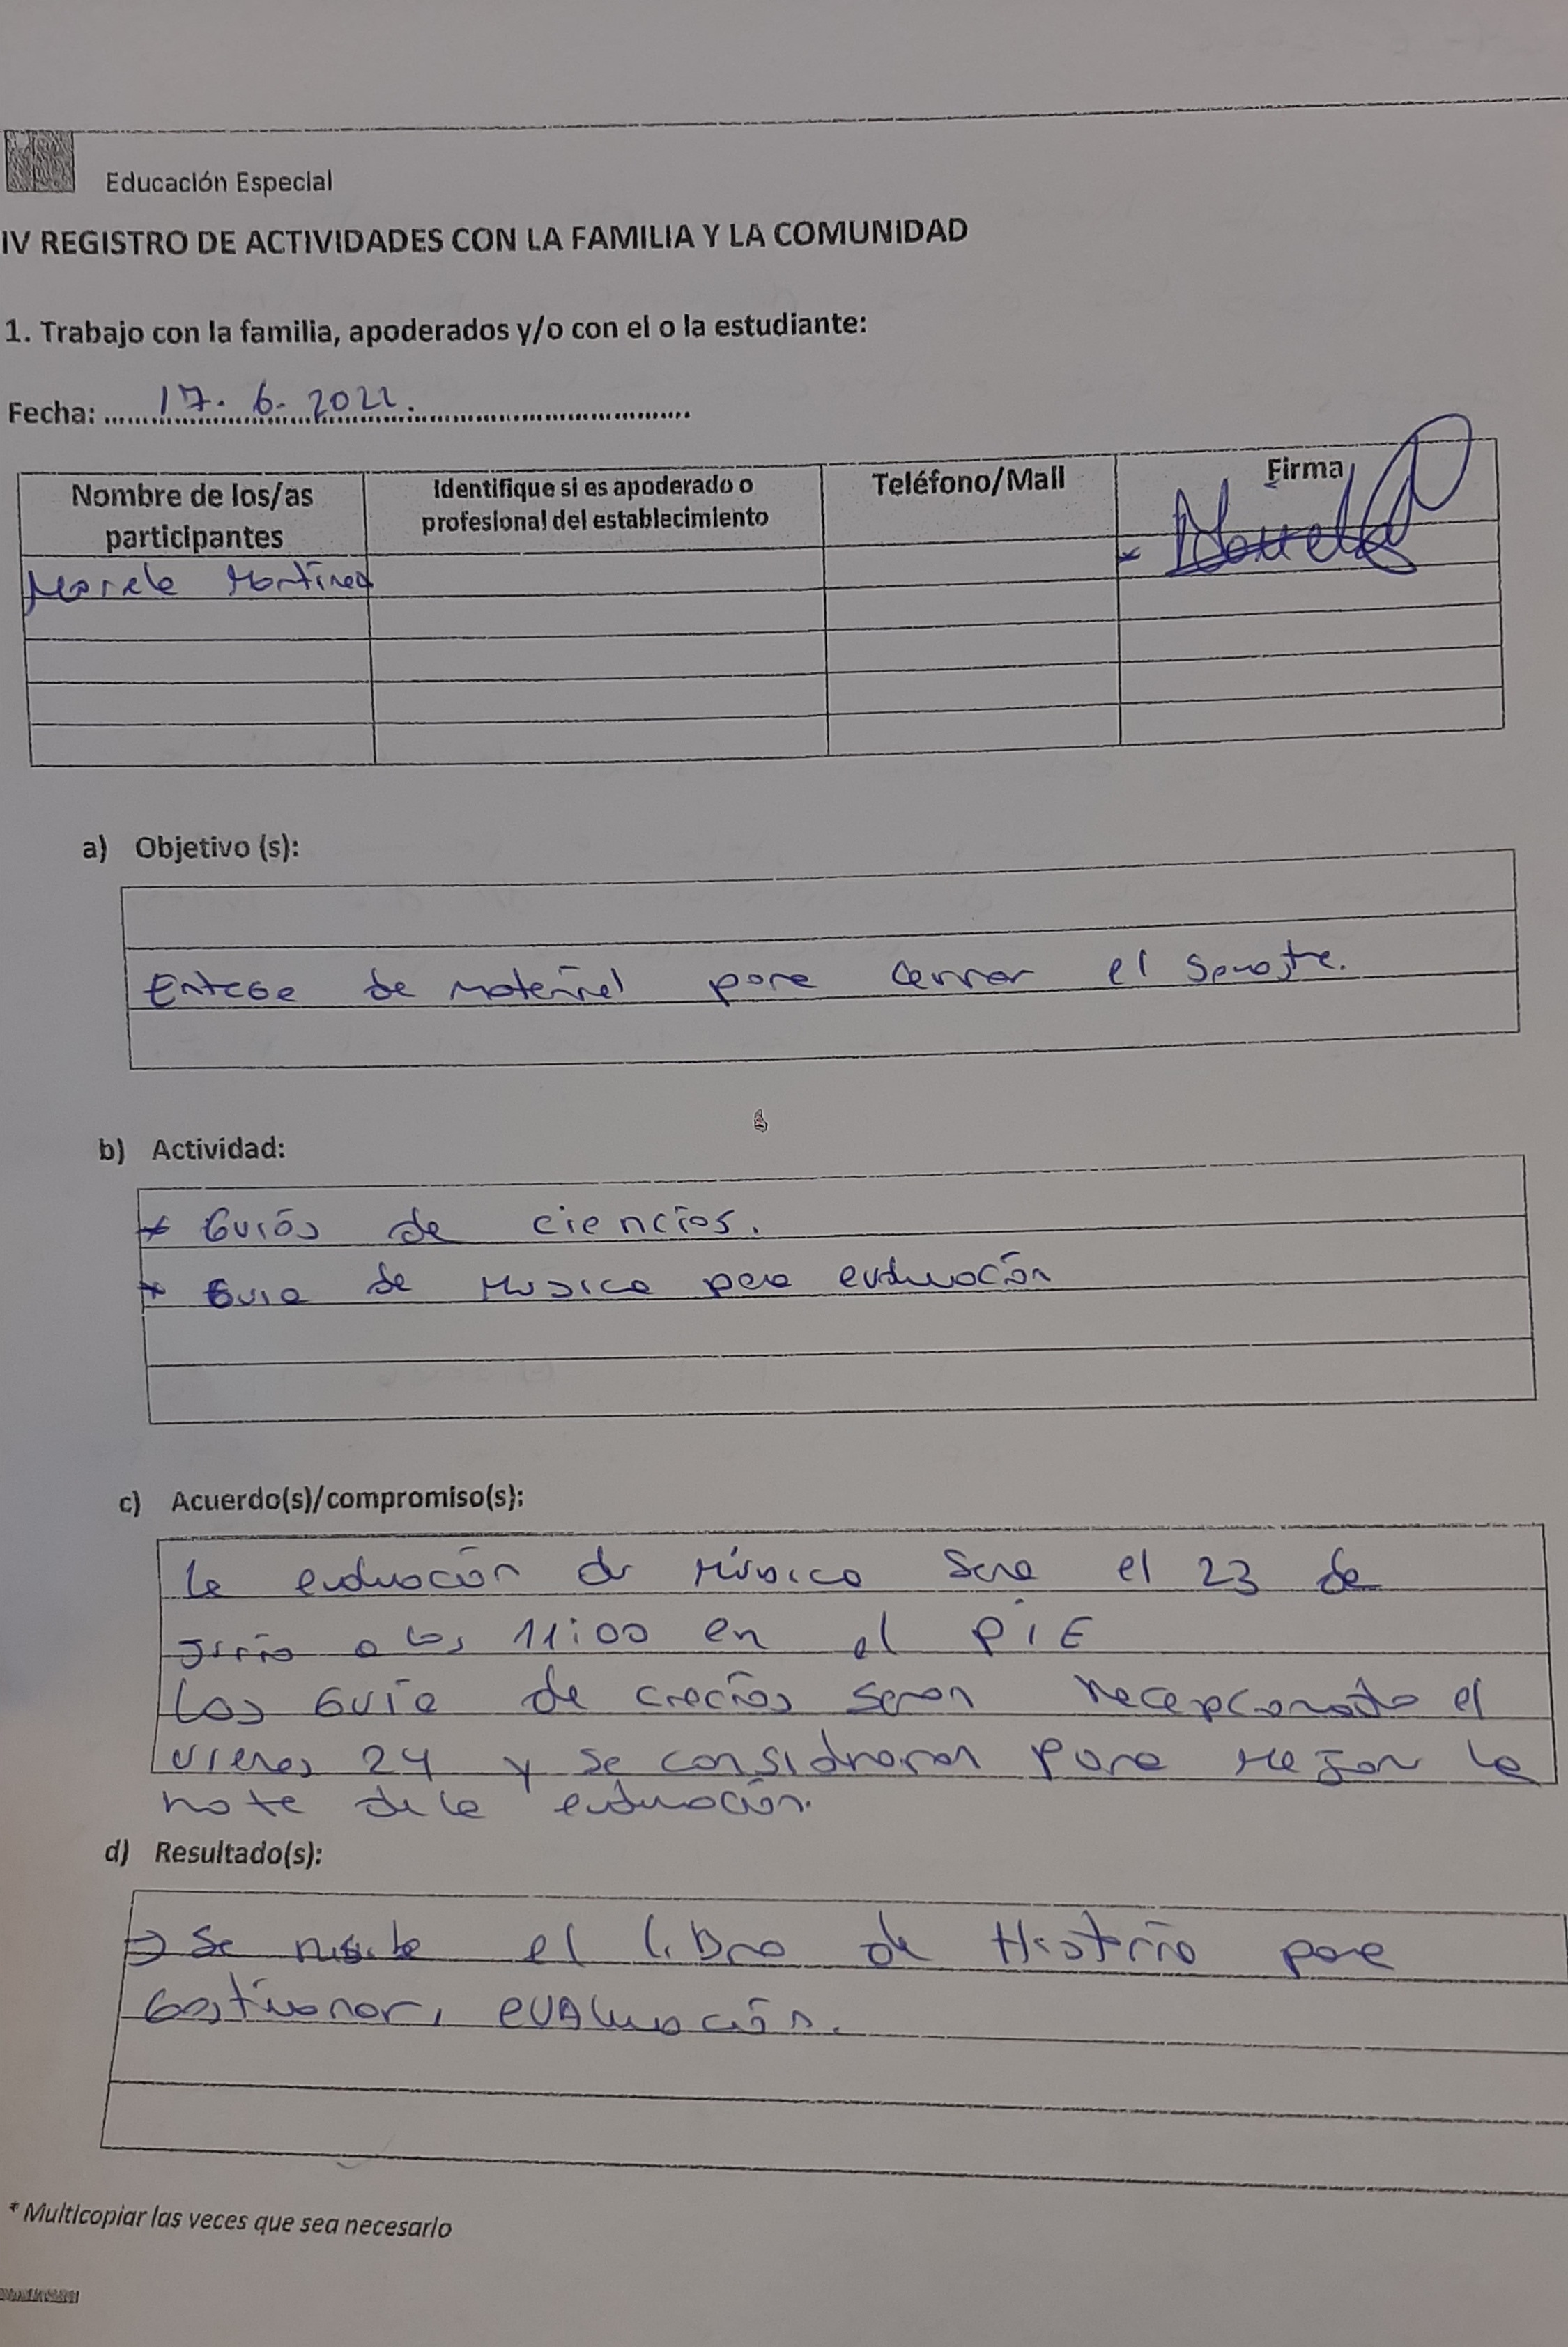 Educación Especial
IV REGISTRO DE ACTIVIDADES CON LA FAMILIA Y LA COMUNIDAD
1. Trabajo con la familia, apoderados y/o con el o la estudiante:
Fecha: 17. 6. 2022.
Nombre de los/as participantes
Identifique si es apoderado o profesional del establecimiento
Teléfono/Mail
Firma
a) Objetivo (s):
Entega de material para cerrar el
b) Actividad:
* Guías de ciencias.
* Guia de Musica para evaluación
c) Acuerdo(s)/compromiso(s):
la evaluación de Música sera el 23 de
junio a las 11:00 en el PIE
Las Guía de seran el
viernes 24 y se consideraran para mejorar la
nota de la evaluación.
d) Resultado(s):
→ Se el libro de Historia para
evaluación.
* Multicopiar las veces que sea necesario